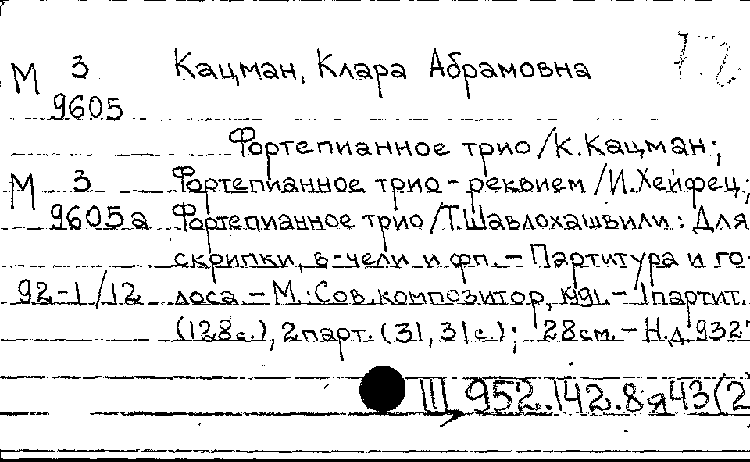 М 3 Кацман, Клара Абрамовна
9605
Фортепианное трио/К.Кацман;
М 3 Фортепианное трио-реквием/И.Хейфец;
9605а Фортепианное трио/Т.Шавлохашвили: Для
скрипки, в-чели и фп. – Партитура и го-
92-1/12 лоса. – М.: Сов. композитор, 1991. – 1 партит.
(128 с.), 2 парт. (31, 31 с.); 28 см. – Н.д. 9327
III 952.142.8я43(2